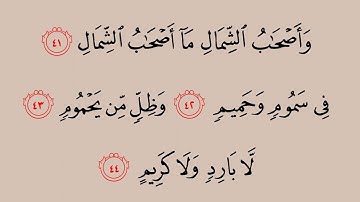 وَأَصۡحَٰبُ ٱلشِّمَالِ مَآ أَصۡحَٰبُ ٱلشِّمَالِ ٤١
فِي سَمُومٖ وَحَمِيمٖ ٤٢ وَظِلّٖ مِّن يَحۡمُومٖ ٤٣
لَّا بَارِدٖ وَلَا كَرِيمٍ ٤٤